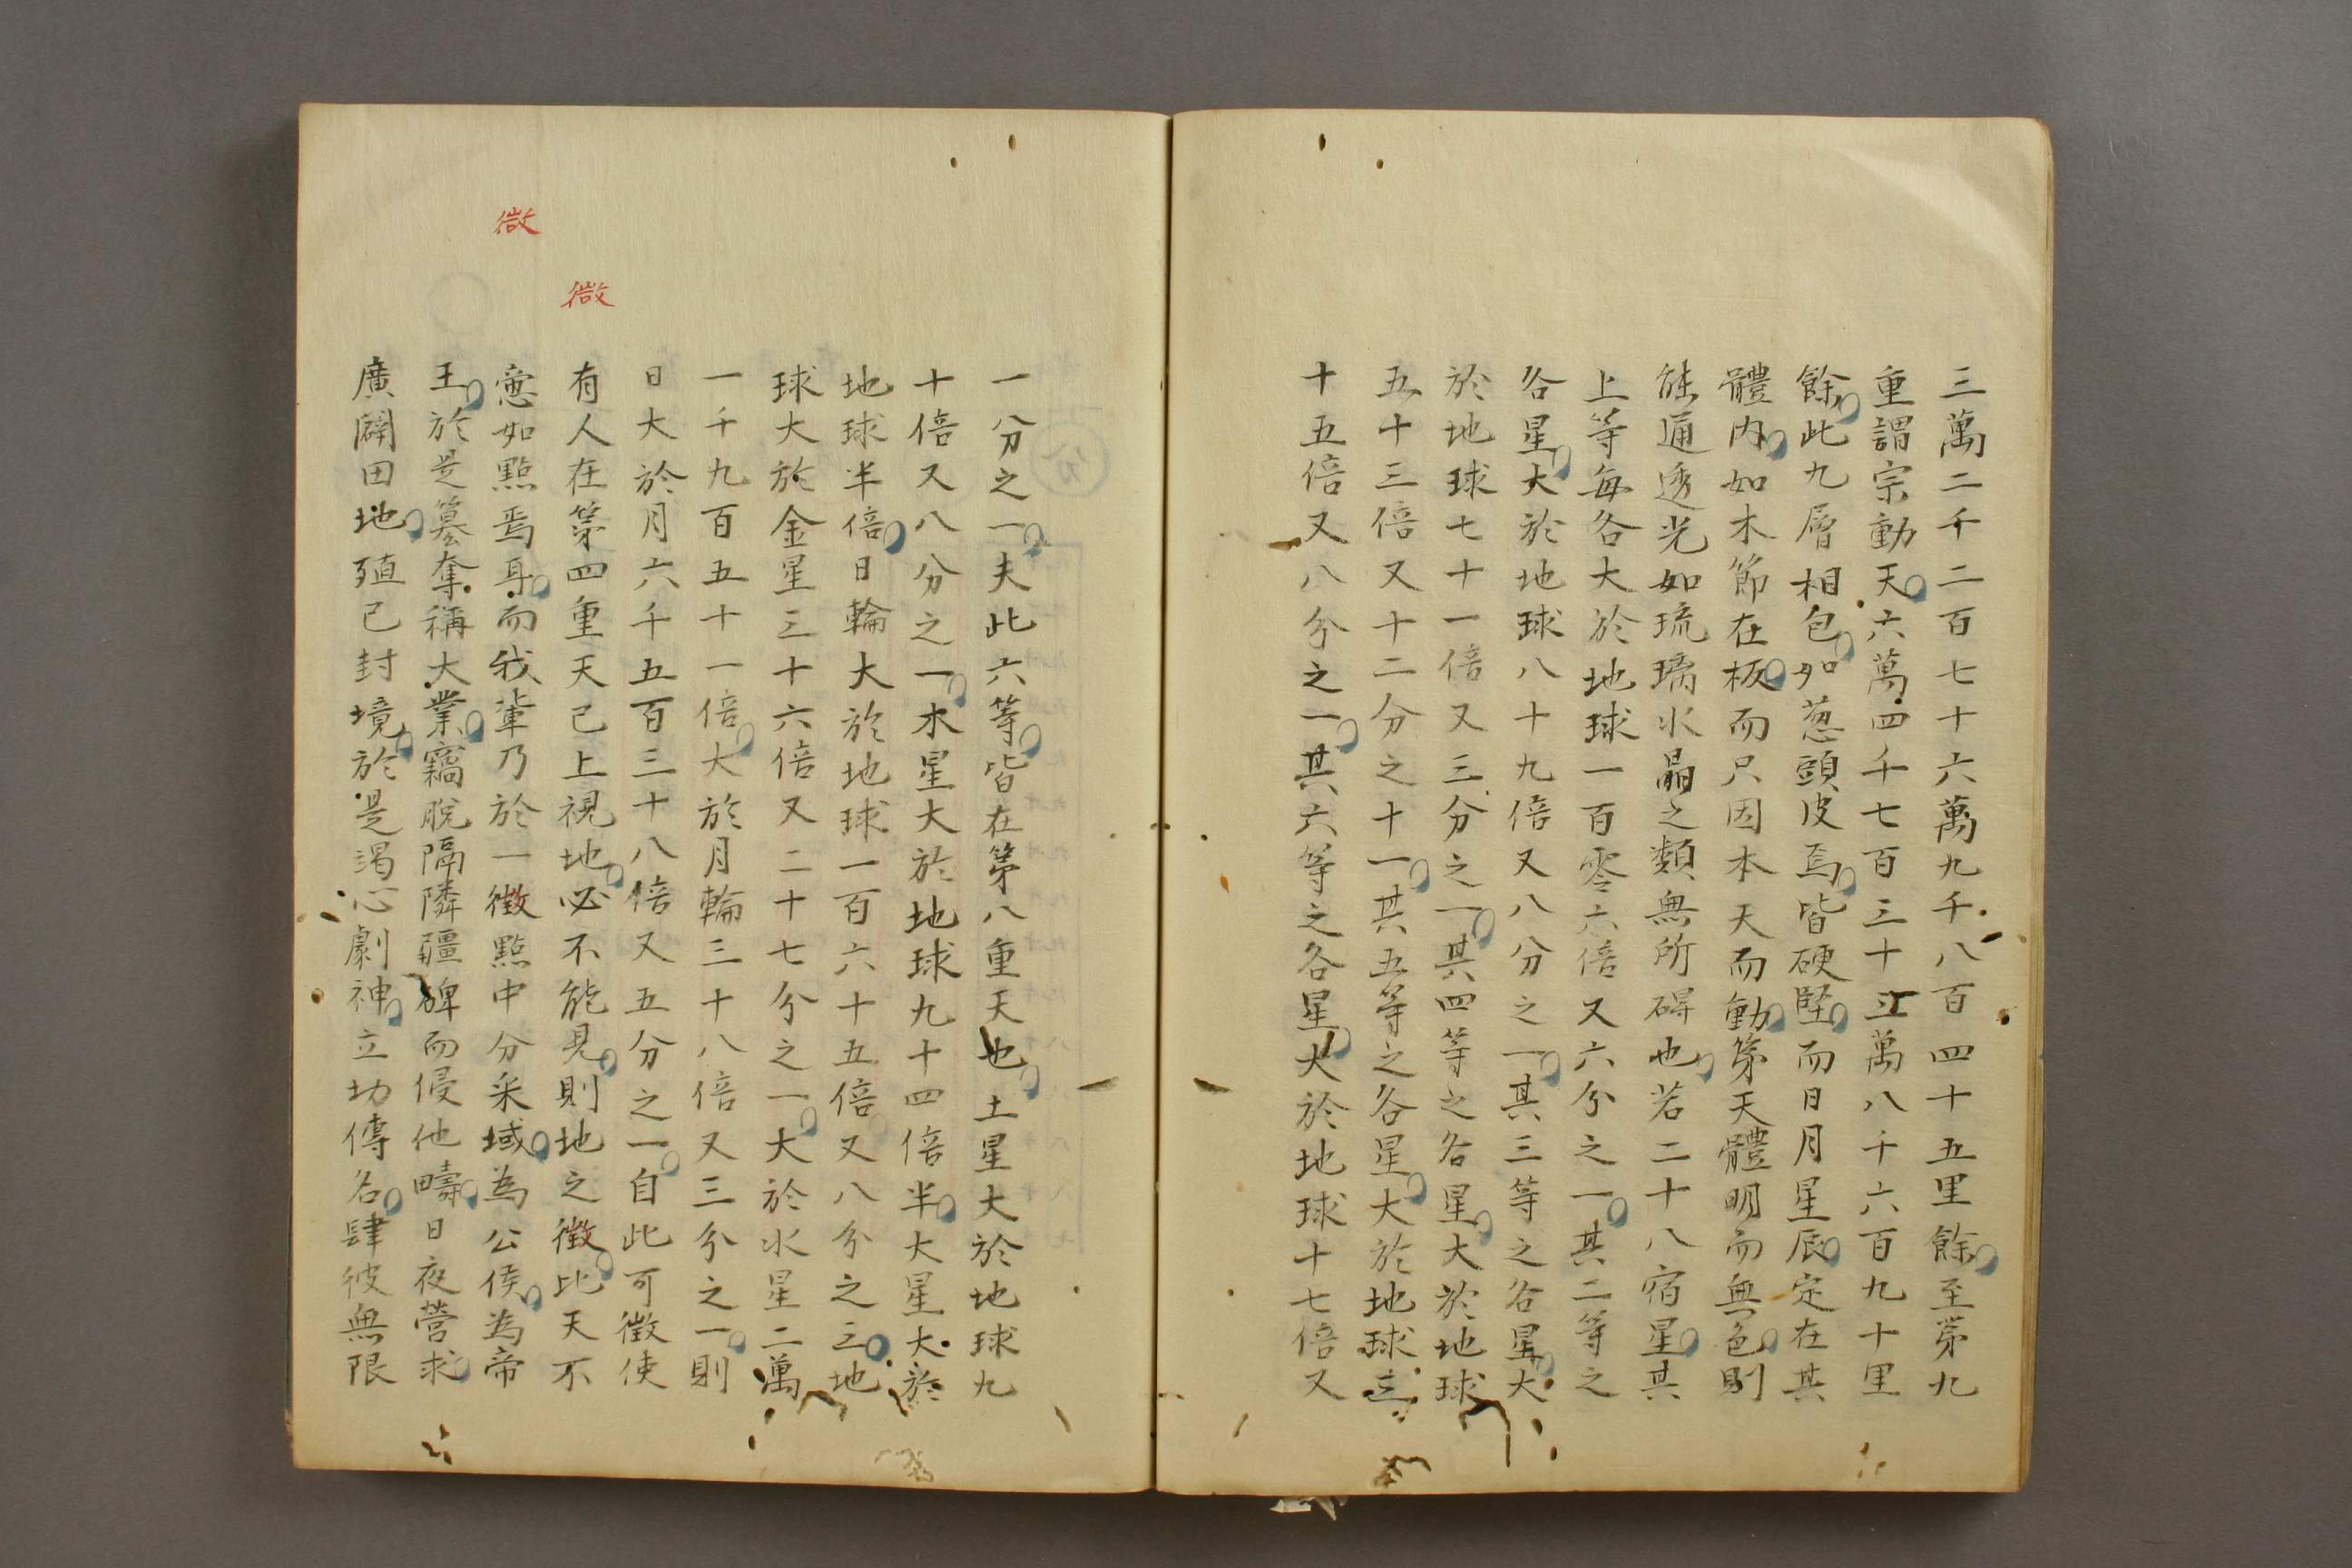 三萬二千二百七十六萬九千八百四十五里餘至第九
重謂宗動天六萬四千七百三十三萬八千六百九十里
餘此九層相包如葱頭皮焉皆硬堅而日月星辰定在其
體内如木節在板而只因本天而動第天體明而無色則
能通透光如琉璃水晶之類無所碍也若二十八宿星其
上等每各大於地球一百零六倍又六分之一其二等之
各星大於地球八十九倍又八分之一其三等之各星大
於地球七十一倍又三分之一其四等之各星大於地球
五十三倍又十二分之十一其五等之各星大於地球三
十五倍又八分之一其六等之各星大於地球十七倍又
一分之一夫此六等皆在第八重天也土星大於地球九
十倍又八分之一木星大於地球九十四倍半大星大於
地球半倍日輪大於地球一百六十五倍又八分之三地
球大於金星三十六倍又二十七分之一大於水星二萬
一千九百五十一倍大於月輪三十八倍又三分之一則
日大於月六千五百三十八倍又五分之一自此可徵使
有人在第四重天已上視地必不能見則地之徵比天不
啻如點焉耳而我輩乃於一徵點中分采域為公侯為帝
王於是篡奪稱大業竊脫隔隣疆碑而侵他疇日夜營求
廣闢田地殖己封境於是竭心劇神立功傳名肆彼無限
微
微